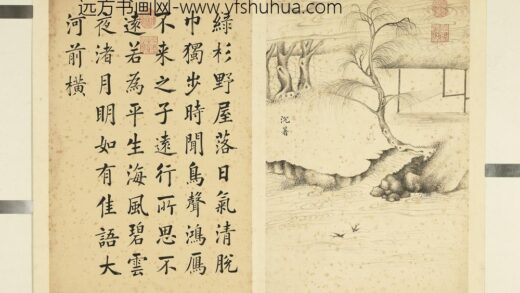 远方书画网-www.yfshuhua.com
沉著
綠杉野屋落日氣清脫
巾獨步時聞鳥聲鴻鴈
不來之子遠行所思不
遠若為平生海風碧雲
夜渚月明如有佳語大
河前橫